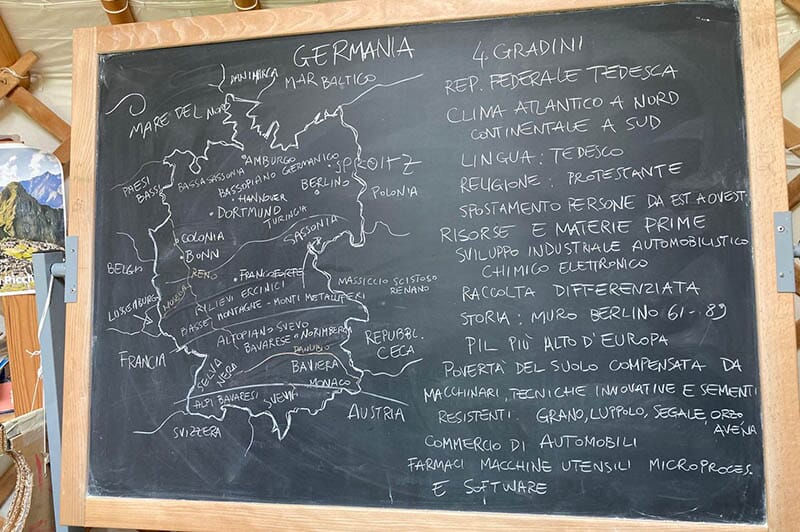 GERMANIA
DANIMARCA
MAR BALTICO
MARE DEL NORD
AMBURGO
BASSA SASSONIA
BASSOPIANO GERMANICO
HANNOVER
BERLINO
PAESI
BASSI
POLONIA
DORTMUND
TURINGIA
SASSONIA
COLONIA
BONN
BELGIO
RENO
FRANCOFORTE
MOSELLA
LUSSEMBURGO
MASSICCIO SCISTOSO
RENANO
RILIEVI ERCINICI
MONTAGNE - MONTI METALLIFERI
ALTOPIANO SVEVO
BAVARESE
NORIMBERGA
REPUBBL.
CECA
FRANCIA
DANUBIO
SELVA
NERA
BAVIERA
MONACO
ALPI BAVARESI
SVIZZERA
AUSTRIA
4 GRADINI
REP. FEDERALE TEDESCA
CLIMA ATLANTICO A NORD
CONTINENTALE A SUD
LINGUA: TEDESCO
RELIGIONE: PROTESTANTE
SPOSTAMENTO PERSONE DA EST A OVEST
RISORSE E MATERIE PRIME
SVILUPPO INDUSTRIALE AUTOMOBILISTICO
CHIMICO ELETTRONICO
RACCOLTA DIFFERENZIATA
STORIA: MURO BERLINO 61-89
PIL PIÙ ALTO D'EUROPA
POVERTÀ DEL SUOLO COMPENSATA DA
MACCHINARI, TECNICHE INNOVATIVE E SEMENTI
RESISTENTI. GRANO, LUPPOLO, SEGALE, ORZO
AVENA
COMMERCIO DI AUTOMOBILI
FARMACI MACCHINE UTENSILI MICROPROCES.
E SOFTWARE